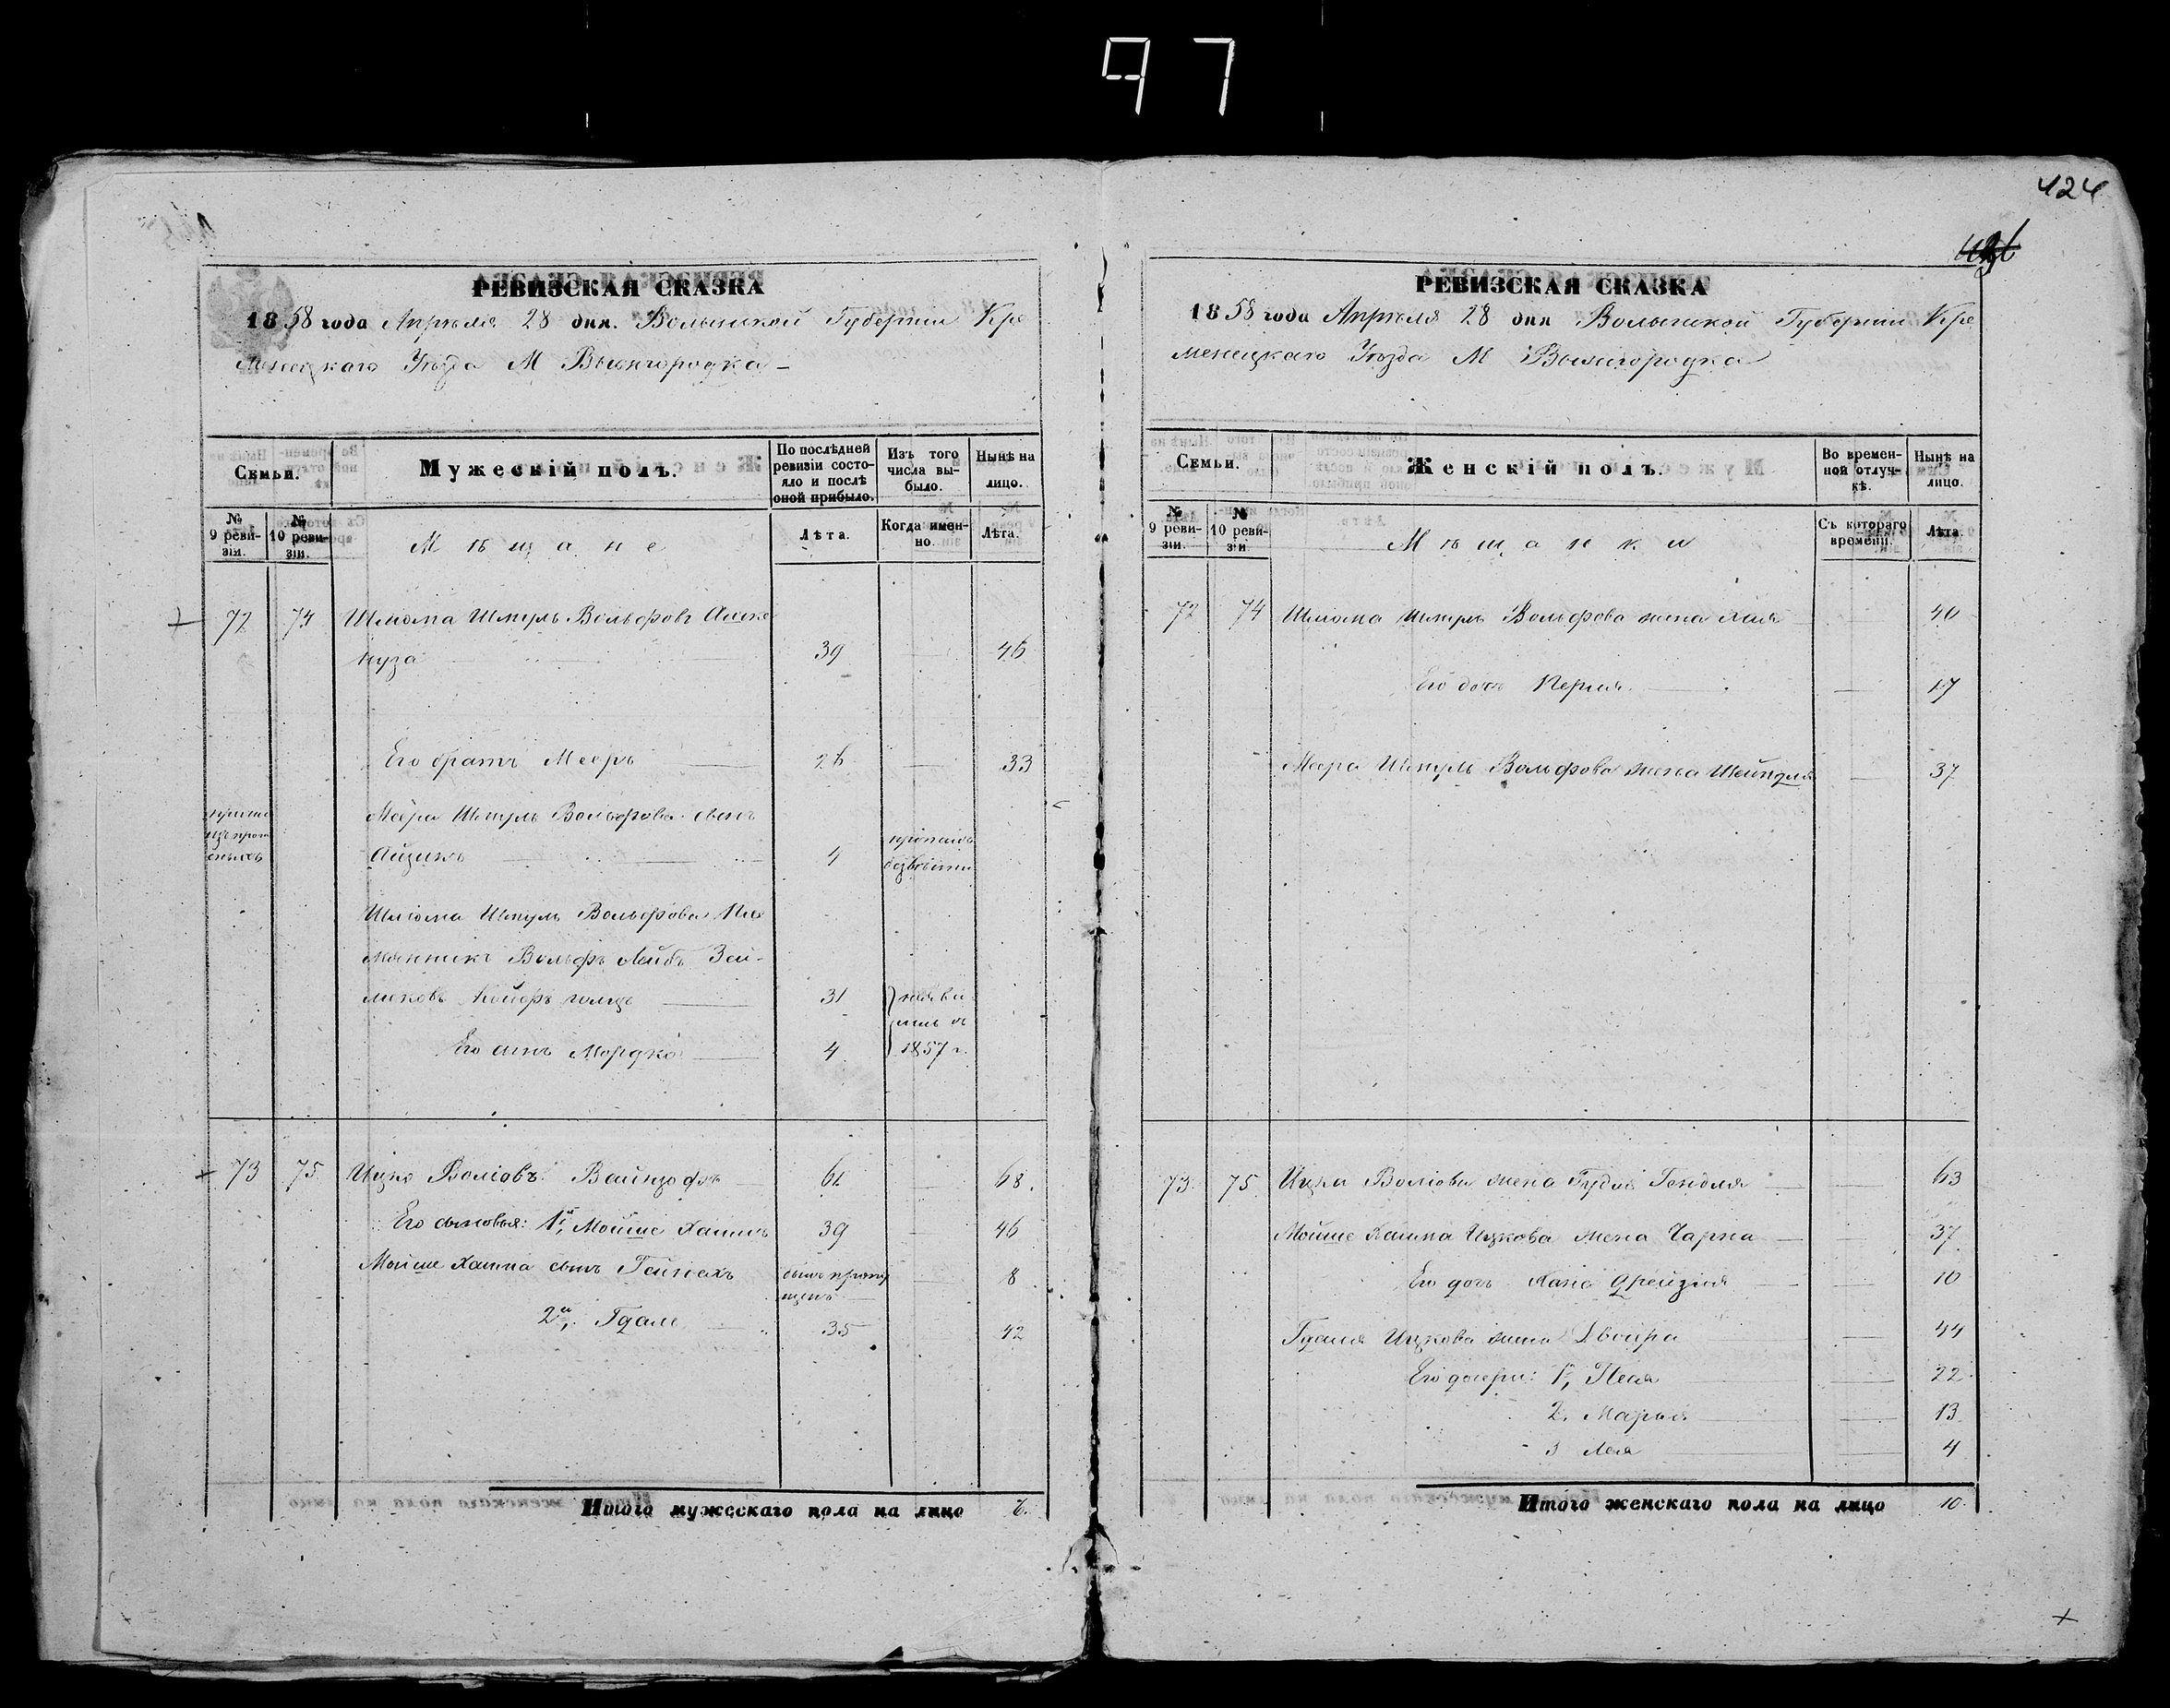 97
424
РЕВИЗСКАЯ СКАЗКА
1858 года Апреля 28 дня. Волынской Губернии Кре
менецкаго Уезда М Вышгородка
Семьи.
Мужескій полъ.
По послѣдней ревизіи состояло и послѣ оной прибыло.
Изъ того числа выбыло.
Нынѣ на лицо.
№ 9 ревизіи.
№ 10 ревизіи.
Мѣщане
Лѣта.
Когда именно.
Лѣта.
72 74 Шліома Шмуль Вольфовъ Ашке
нуза 39 46
Его братъ Мееръ 26 33
Меера Шмуль Вольфова сынъ
Айзикъ 4
Шліома Шмуль Вольфова Пле
мянникъ Вольфъ Лейбъ Зей-
31
Его сынъ Мордко 4 1857 г.
73 75 Ицко Воліовъ Вайнцофъ 61 68.
Его сыновья: 1й, Мойше Хаимъ 39 46
Мойше Хаима сынъ Генехъ 8
2й, Гдаля 35 42
Итого мужескаго пола на лицо 6.
РЕВИЗСКАЯ СКАЗКА
1858 года Апреля 28 дня Волынской Губерніи Кре
менецкаго Уезда М Вышгородка
Семьи.
Женскій полъ.
Во временной отлучкѣ.
Нынѣ на лицо.
№ 9 ревизіи.
№ 10 ревизіи.
Мѣщанки
Съ котораго времени.
Лѣта.
72 74 Шліома Шмуль Вольфова жена Хая 40
Его дочь Перля 17
Меера Шмуль Вольфова жена Шейндля 37
73 75 Ицка Воліова жена Гудля Гендля 63
Мойше Хаима Ицкова жена Чарна 37
Его дочь Хана Фрейдля 10
Гдаля Ицкова жена Двойра 44
Его дочери: 1, Песя 22
2, Марья 13
3 Лея 4
Итого женскаго пола на лицо 10.